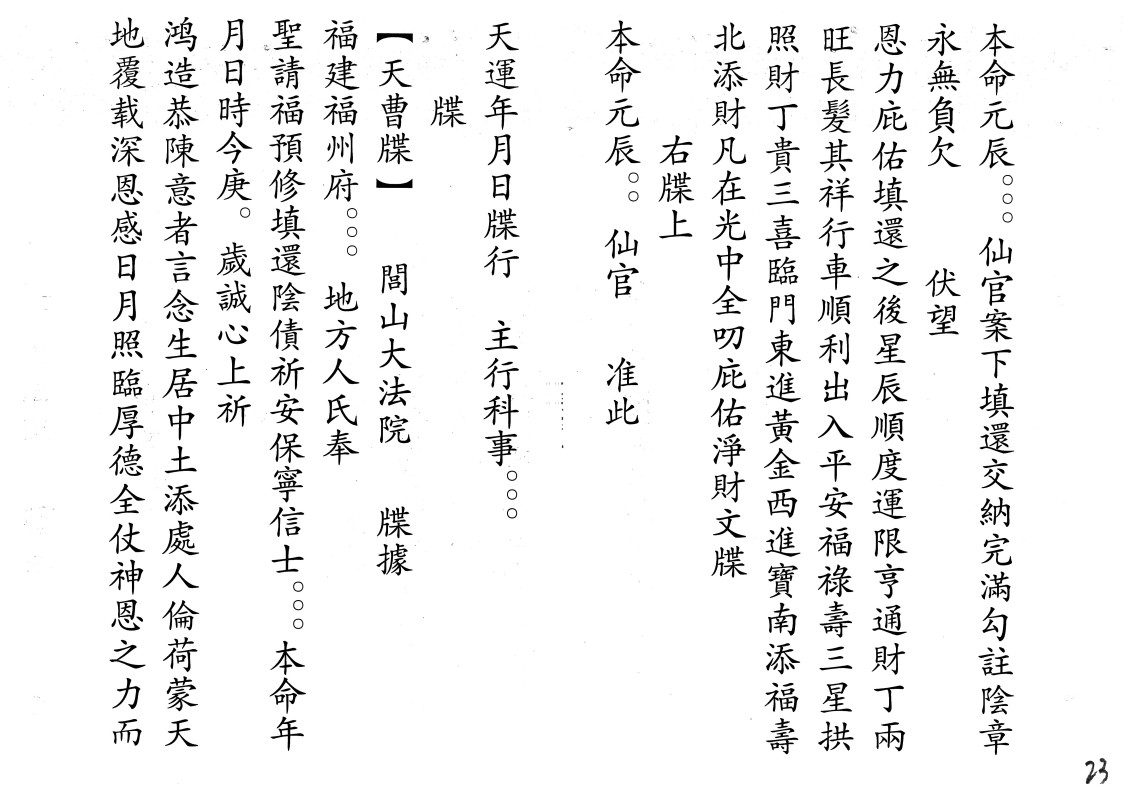 本命元辰○○○仙官案下填還交納完滿勾註陰章
永無負欠　伏望
恩力庇佑填還之後星辰順度運限亨通財丁兩
旺長髮其祥行車順利出入平安福祿壽三星拱
照財丁貴三喜臨門東進黃金西進寶南添福壽
北添財凡在光中全叨庇佑淨財文牒
右牒上
本命元辰○○仙官　准此
天運年月日牒行　主行科事○○○
牒
【天曹牒】　閭山大法院　牒據
福建福州府○○○　地方人氏奉
聖請福預修填還陰債祈安保寧信士○○○本命年
月日時今庚○歲誠心上祈
鸿造恭陳意者言念生居中土添處人倫荷蒙天
地覆载深恩感日月照臨厚德全仗神恩之力而
23